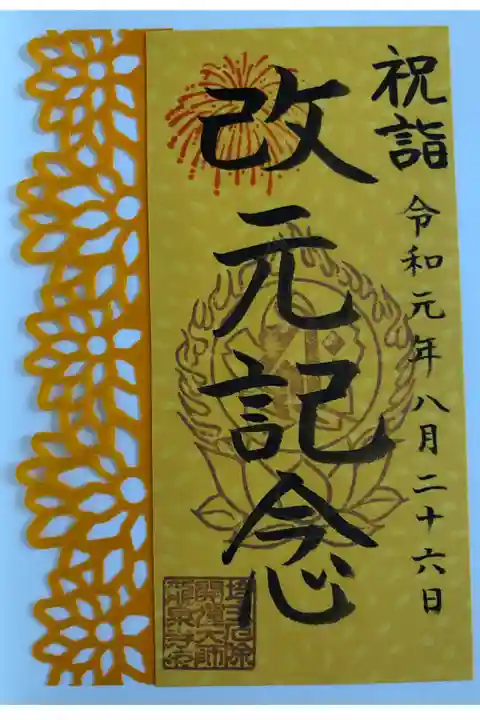 祝詣
令和元年八月二十六日
改元記念